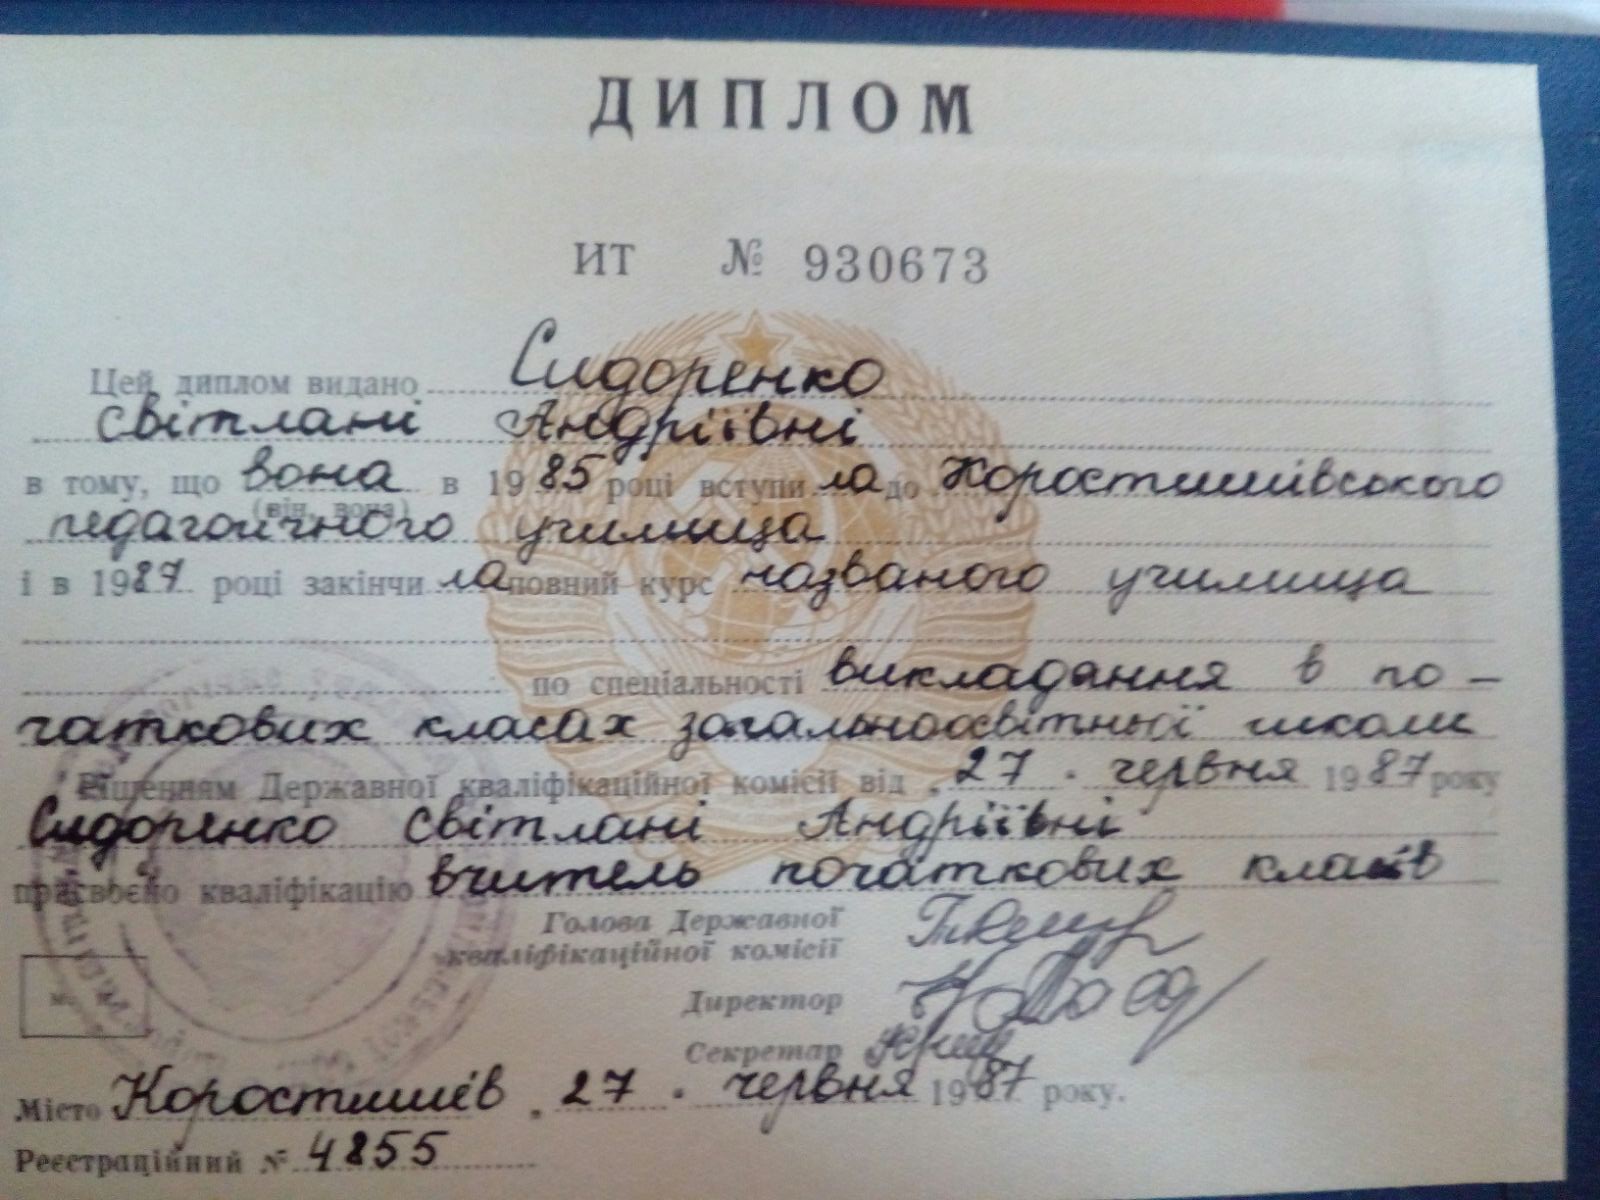 ДИПЛОМ
ИТ № 930673
Цей диплом видано Сидоренко
Світлані Андріївні
в тому, що вона в 1985 році вступила до Коростишівського
(він, вона)
педагогічного училища
і в 1987 році закінчила повний курс названого училища
по спеціальності викладання в по-
чаткових класах загальноосвітньої школи
Рішенням Державної кваліфікаційної комісії від „27" червня 1987 року
Сидоренко Світлані Андріївні
присвоєно кваліфікацію вчитель початкових класів
Голова Державної
кваліфікаційної комісії
Директор
Секретар
М.
Місто Коростишів „27" червня 1987 року.
Реєстраційний № 4855